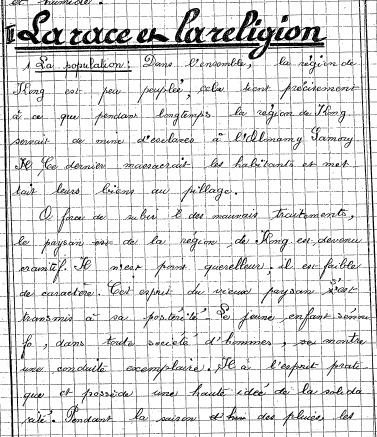 et humide.
II La race et la religion
1. La population: Dans l'ensemble, la région de
Kong est peu peuplée, cela tient précisément
à ce que pendant longtemps la région de Kong
servait de mine d'esclaves à l'Almamy Samory
Ce dernier massacrait les habitants et met
tait leurs biens au pillage.
A force de subir des mauvais traitements,
le paysan de la région de Kong est devenu
craintif. Il n'est point querelleur, il est faible
de caractère. Cet esprit du vieux paysan s'est
transmis à sa postérité. Le jeune enfant sénou
fo, dans toute société d'hommes, se montre
une conduite exemplaire. Il a l'esprit prati
que et possède une haute idée de la solida
rité. Pendant la saison des pluies les